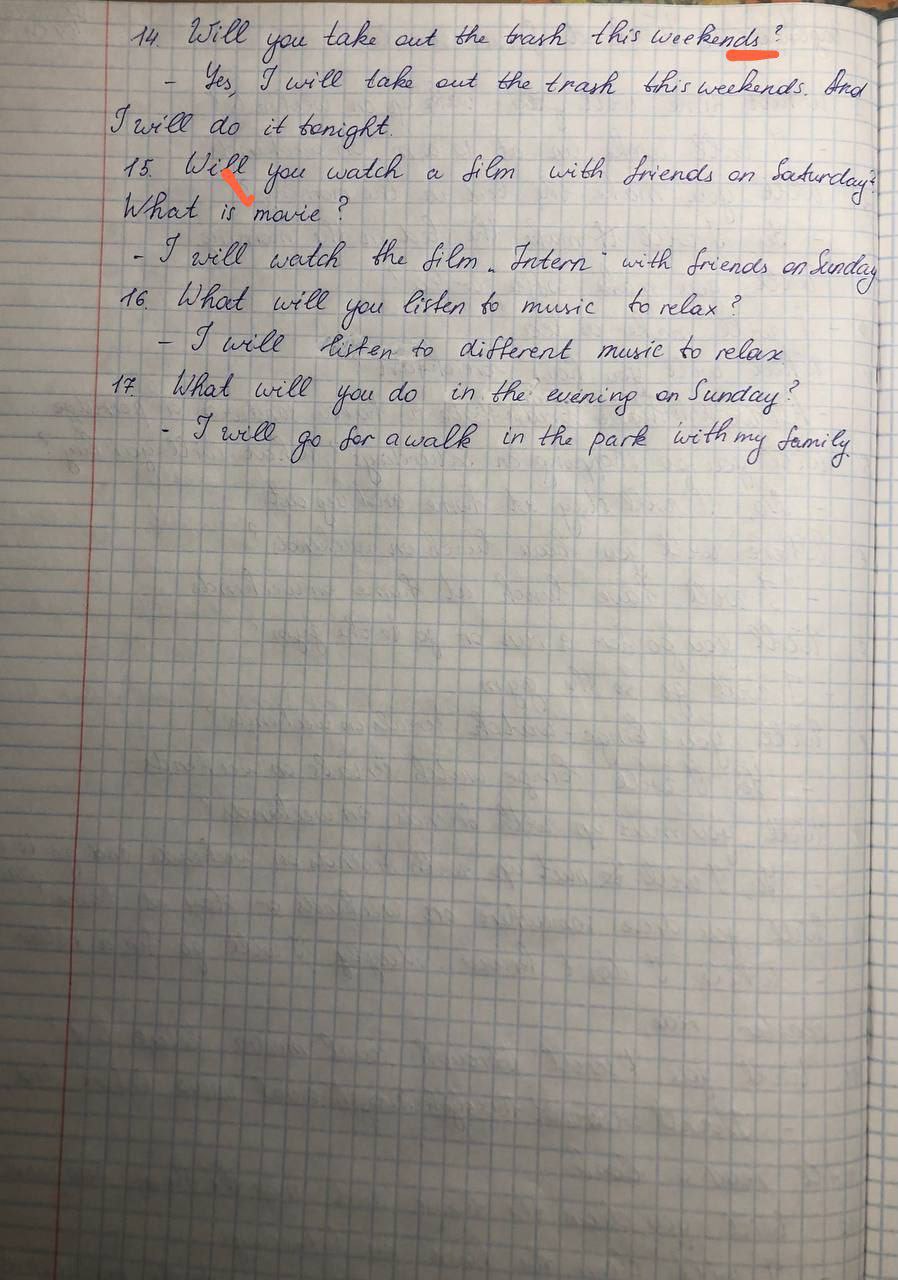 14. Will you take out the trash this weekends?
- Yes, I will take out the trash this weekends. And
I will do it tonight.
15. Will you watch a film with friends on Saturday?
What is movie?
- I will watch the film „Intern" with friends on Sunday
16. What will you listen to music to relax?
- I will listen to different music to relax
17. What will you do in the evening on Sunday?
- I will go for a walk in the park with my family.